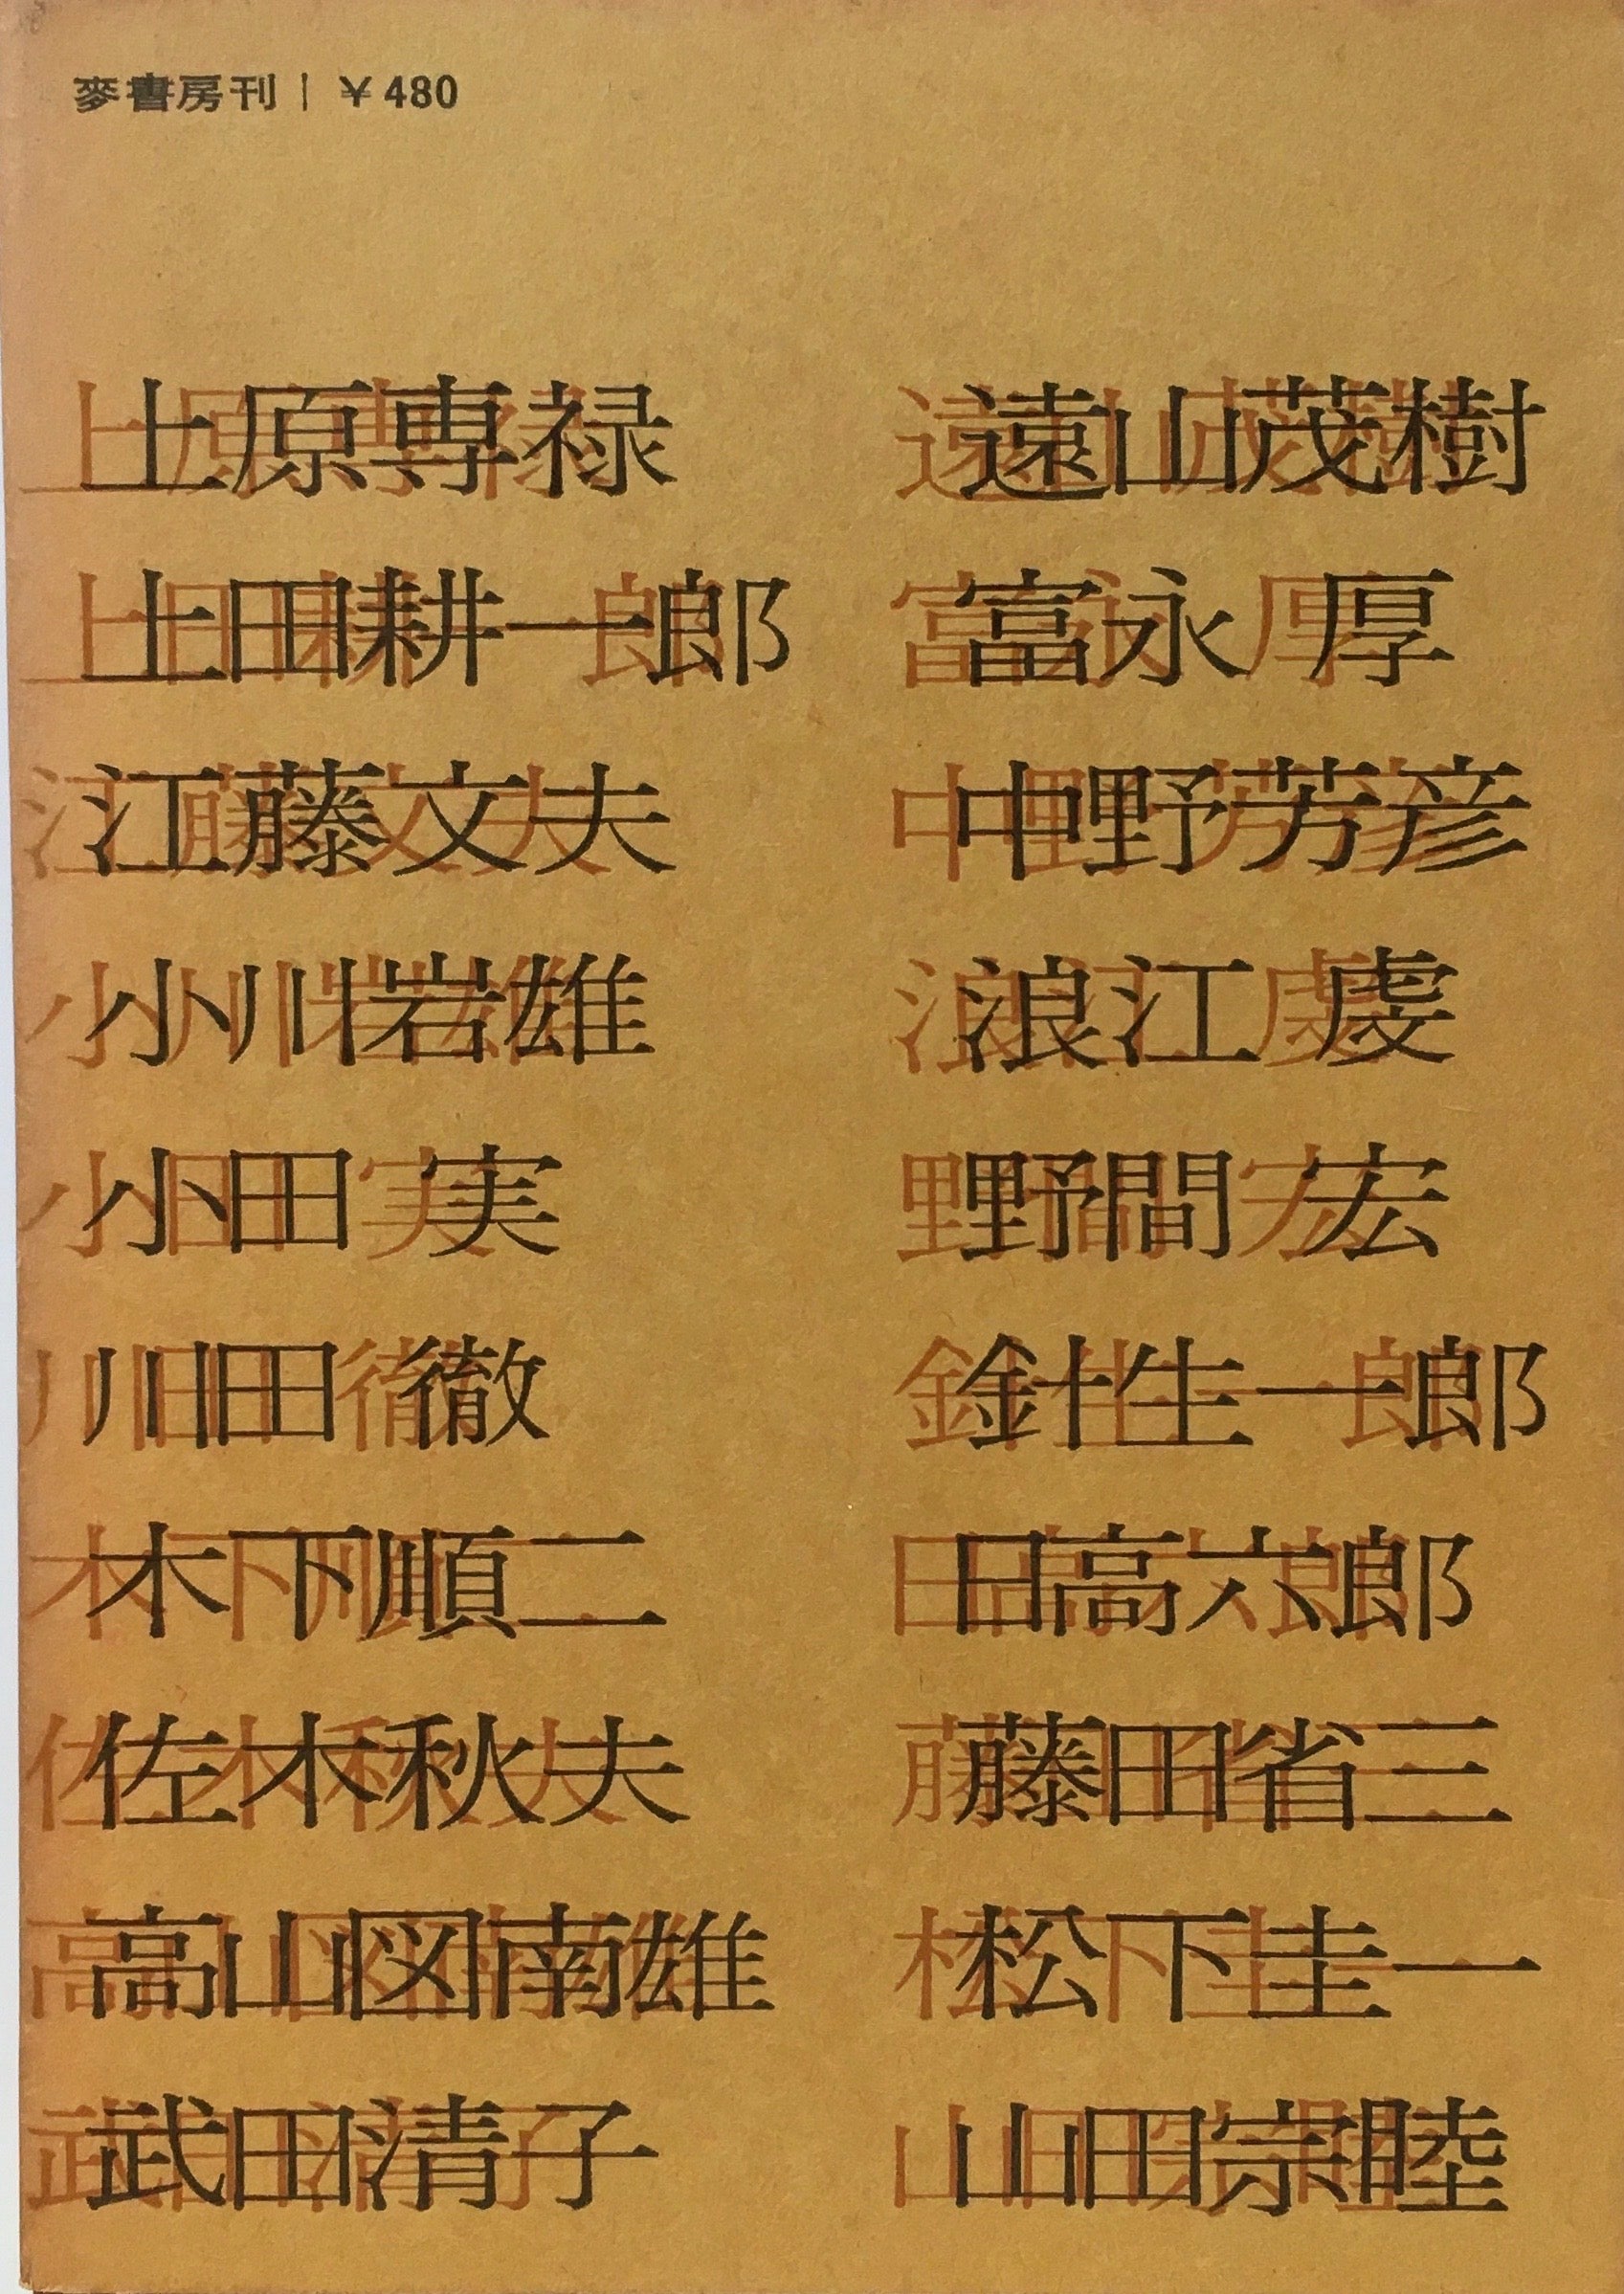 麥書房刊｜￥480
上原専禄
上田耕一郎
江藤文夫
小川岩雄
小田実
川田徹
木下順二
佐木秋夫
高山図南雄
武田清子
遠山茂樹
富永厚
中野芳彦
浪江虔
野間宏
針生一郎
日高六郎
藤田省三
松下圭一
山田宗睦